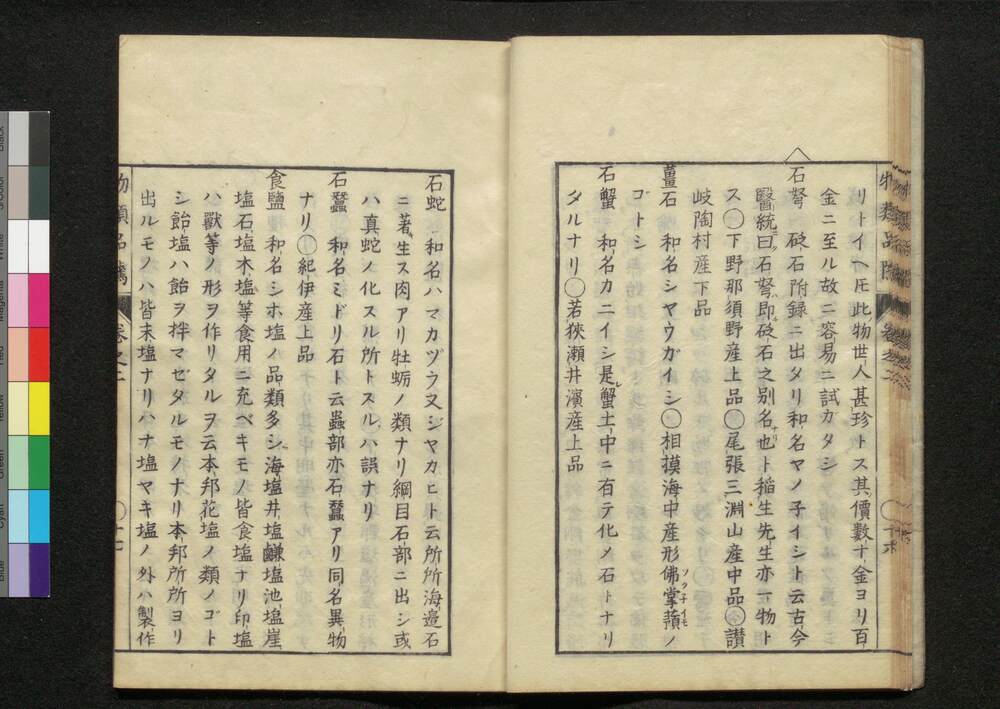 リトイヘ𪜈此物世人甚珍トス其價數十金ヨリ百
金ニ至ル故ニ容易ニ試ガタシ
石砮 砭石附録ニ出タリ和名ヤノ子イシト云古今
醫統曰石砮即砭石之别名也ト稲生先生亦一物ト
ス〇下野那須野産上品〇尾張三淵山産中品〇讃
岐陶村産下品
薑石 和名シヤウガイシ〇相摸海中産形佛掌薯ノ
ゴトシ
石蟹 和名カニイシ是蟹土中ニ有テ化メ石トナリ
タルナリ〇若狹瀬井濱産上品
石蛇 和名ハマカヅラ又ジヤカヒト云所所海邉石
ニ著生ス肉アリ牡蛎ノ類ナリ綱目石部ニ出シ或
ハ真蛇ノ化スル所トスルハ誤ナリ
石蠶 和名ミドリ石ト云蟲部亦石蠶アリ同名異物
ナリ〇紀伊産上品
食鹽 和名シホ塩ノ品類多シ海塩井塩鹻塩池塩崖
塩石塩木塩等食用ニ充ベキモノ皆食塩ナリ印塩
ハ獸等ノ形ヲ作リタルヲ云本邦花塩ノ類ノゴト
シ飴塩ハ飴ヲ拌マゼタルモノナリ本邦所所ヨリ
出ルモノハ皆末塩ナリハナ塩ヤキ塩ノ外ハ製作
物類品隲 卷之二 〇十七